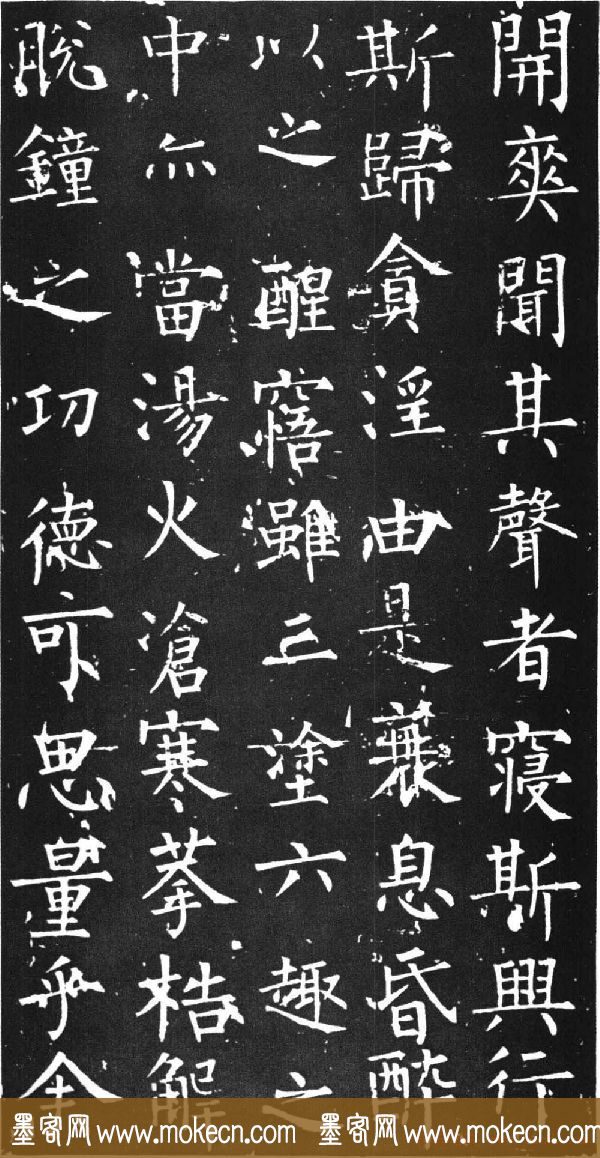 開爽聞其聲者寢斯興行
斯歸貪淫由是衰息昏酔
以之醒寤雖三塗六趣之
中亦當湯火滄寒拲梏解
脫鐘之功德可思量乎全
墨客网 www.mokecn.com 墨客网 www.mokecn.com